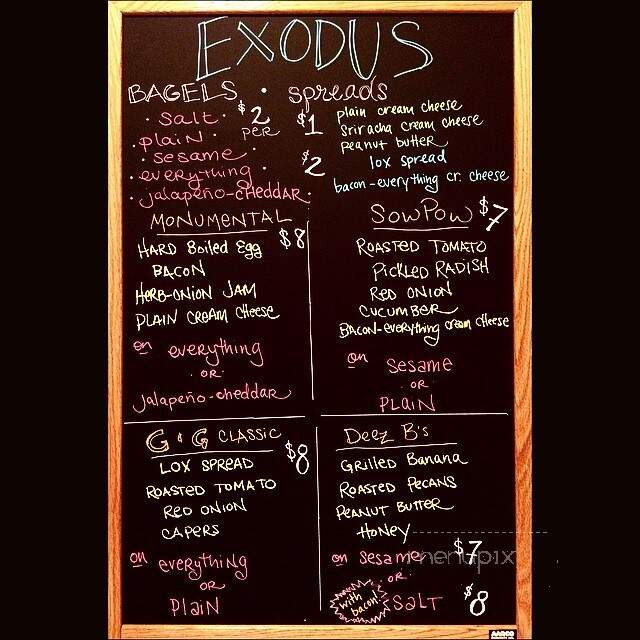 EXODUS
BAGELS • spreads
• Salt • $2 PER
• plain •
• sesame •
• everything
• jalapeño-cheddar •
$1 plain cream cheese
Sriracha cream cheese
peanut butter
$2 lox spread
bacon-everything cr. cheese
MONUMENTAL $8
HARD Boiled Egg
BACON
HERB-ONION JAM
PLAIN CREAM CHEESE
on everything
• OR •
jalapeño-cheddar
SOWPOW $7
ROASTED TOMATO
PICKLED RADISH
RED ONION
CUCUMBER
BACON-everything cream cheese
on SESAME
OR
PLAIN
G & G CLASSIC $8
LOX SPREAD
ROASTED TOMATO
RED ONION
CAPERS
on everything
OR
PLAIN
Deez B's
GRILLED BANANA
ROASTED PECANS
PEANUT BUTTER
HONEY
on SESAME $7
OR
with bacon! SALT $8
menupix